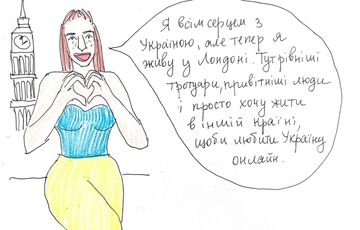 Я всім серцем з
Україною, але тепер я
живу у Лондоні. Тут рівніші
тротуари, привітніші люди
і просто хочу жити
в іншій країні,
щоби любити Україну
онлайн.